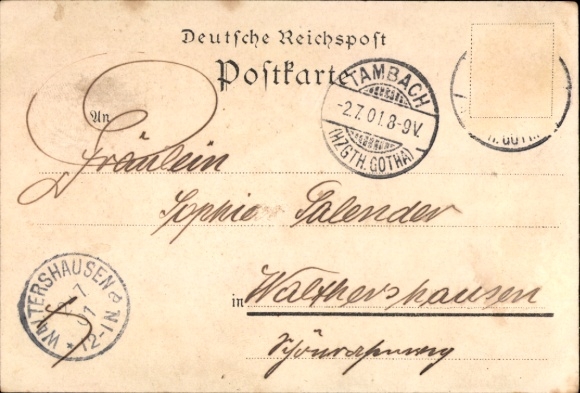 Deutsche Reichspost
Postkarte
TAMBACH
-2.7.01.8-9V.
(HZGTH. GOTHA)
H. GOTH
An
Fräulein
Sophie Salender
in Walthershausen
WALTERSHAUSEN
7
01
12-1N.